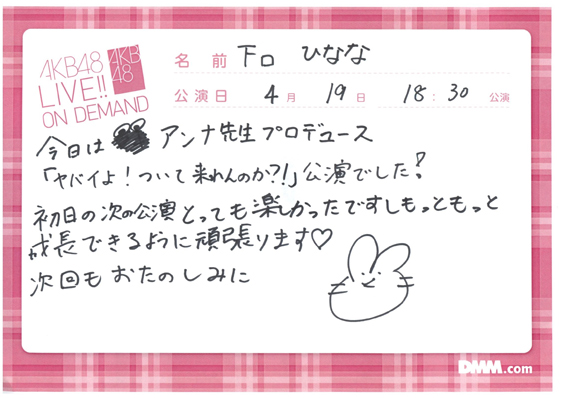 AKB48
LIVE!!
ON DEMAND
AKB
48
名前 下口 ひなな
公演日 4月 19日 18:30 公演
今日は アンナ先生プロデュース
「ヤバイよ!ついて来れんのか?!」公演でした!
初日の次の公演とっても楽しかったですしもっともっと
成長できるように頑張ります♡
次回もおたのしみに
DMM.com